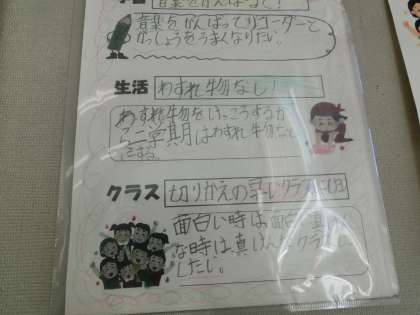 音楽をがんばって!
音楽をがんばってリコーダーと
がっしょうをうまくなりたい。
生活 わすれ物なし!
わすれ物をけっこうするから
二学期はわすれ物なし
にする。
クラス 切りかえの早いクラス
面白い時は面白
な時は真けんなクラスに
したい。